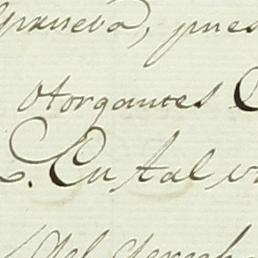 aprueba, pues
otorgantes
En tal
del derech